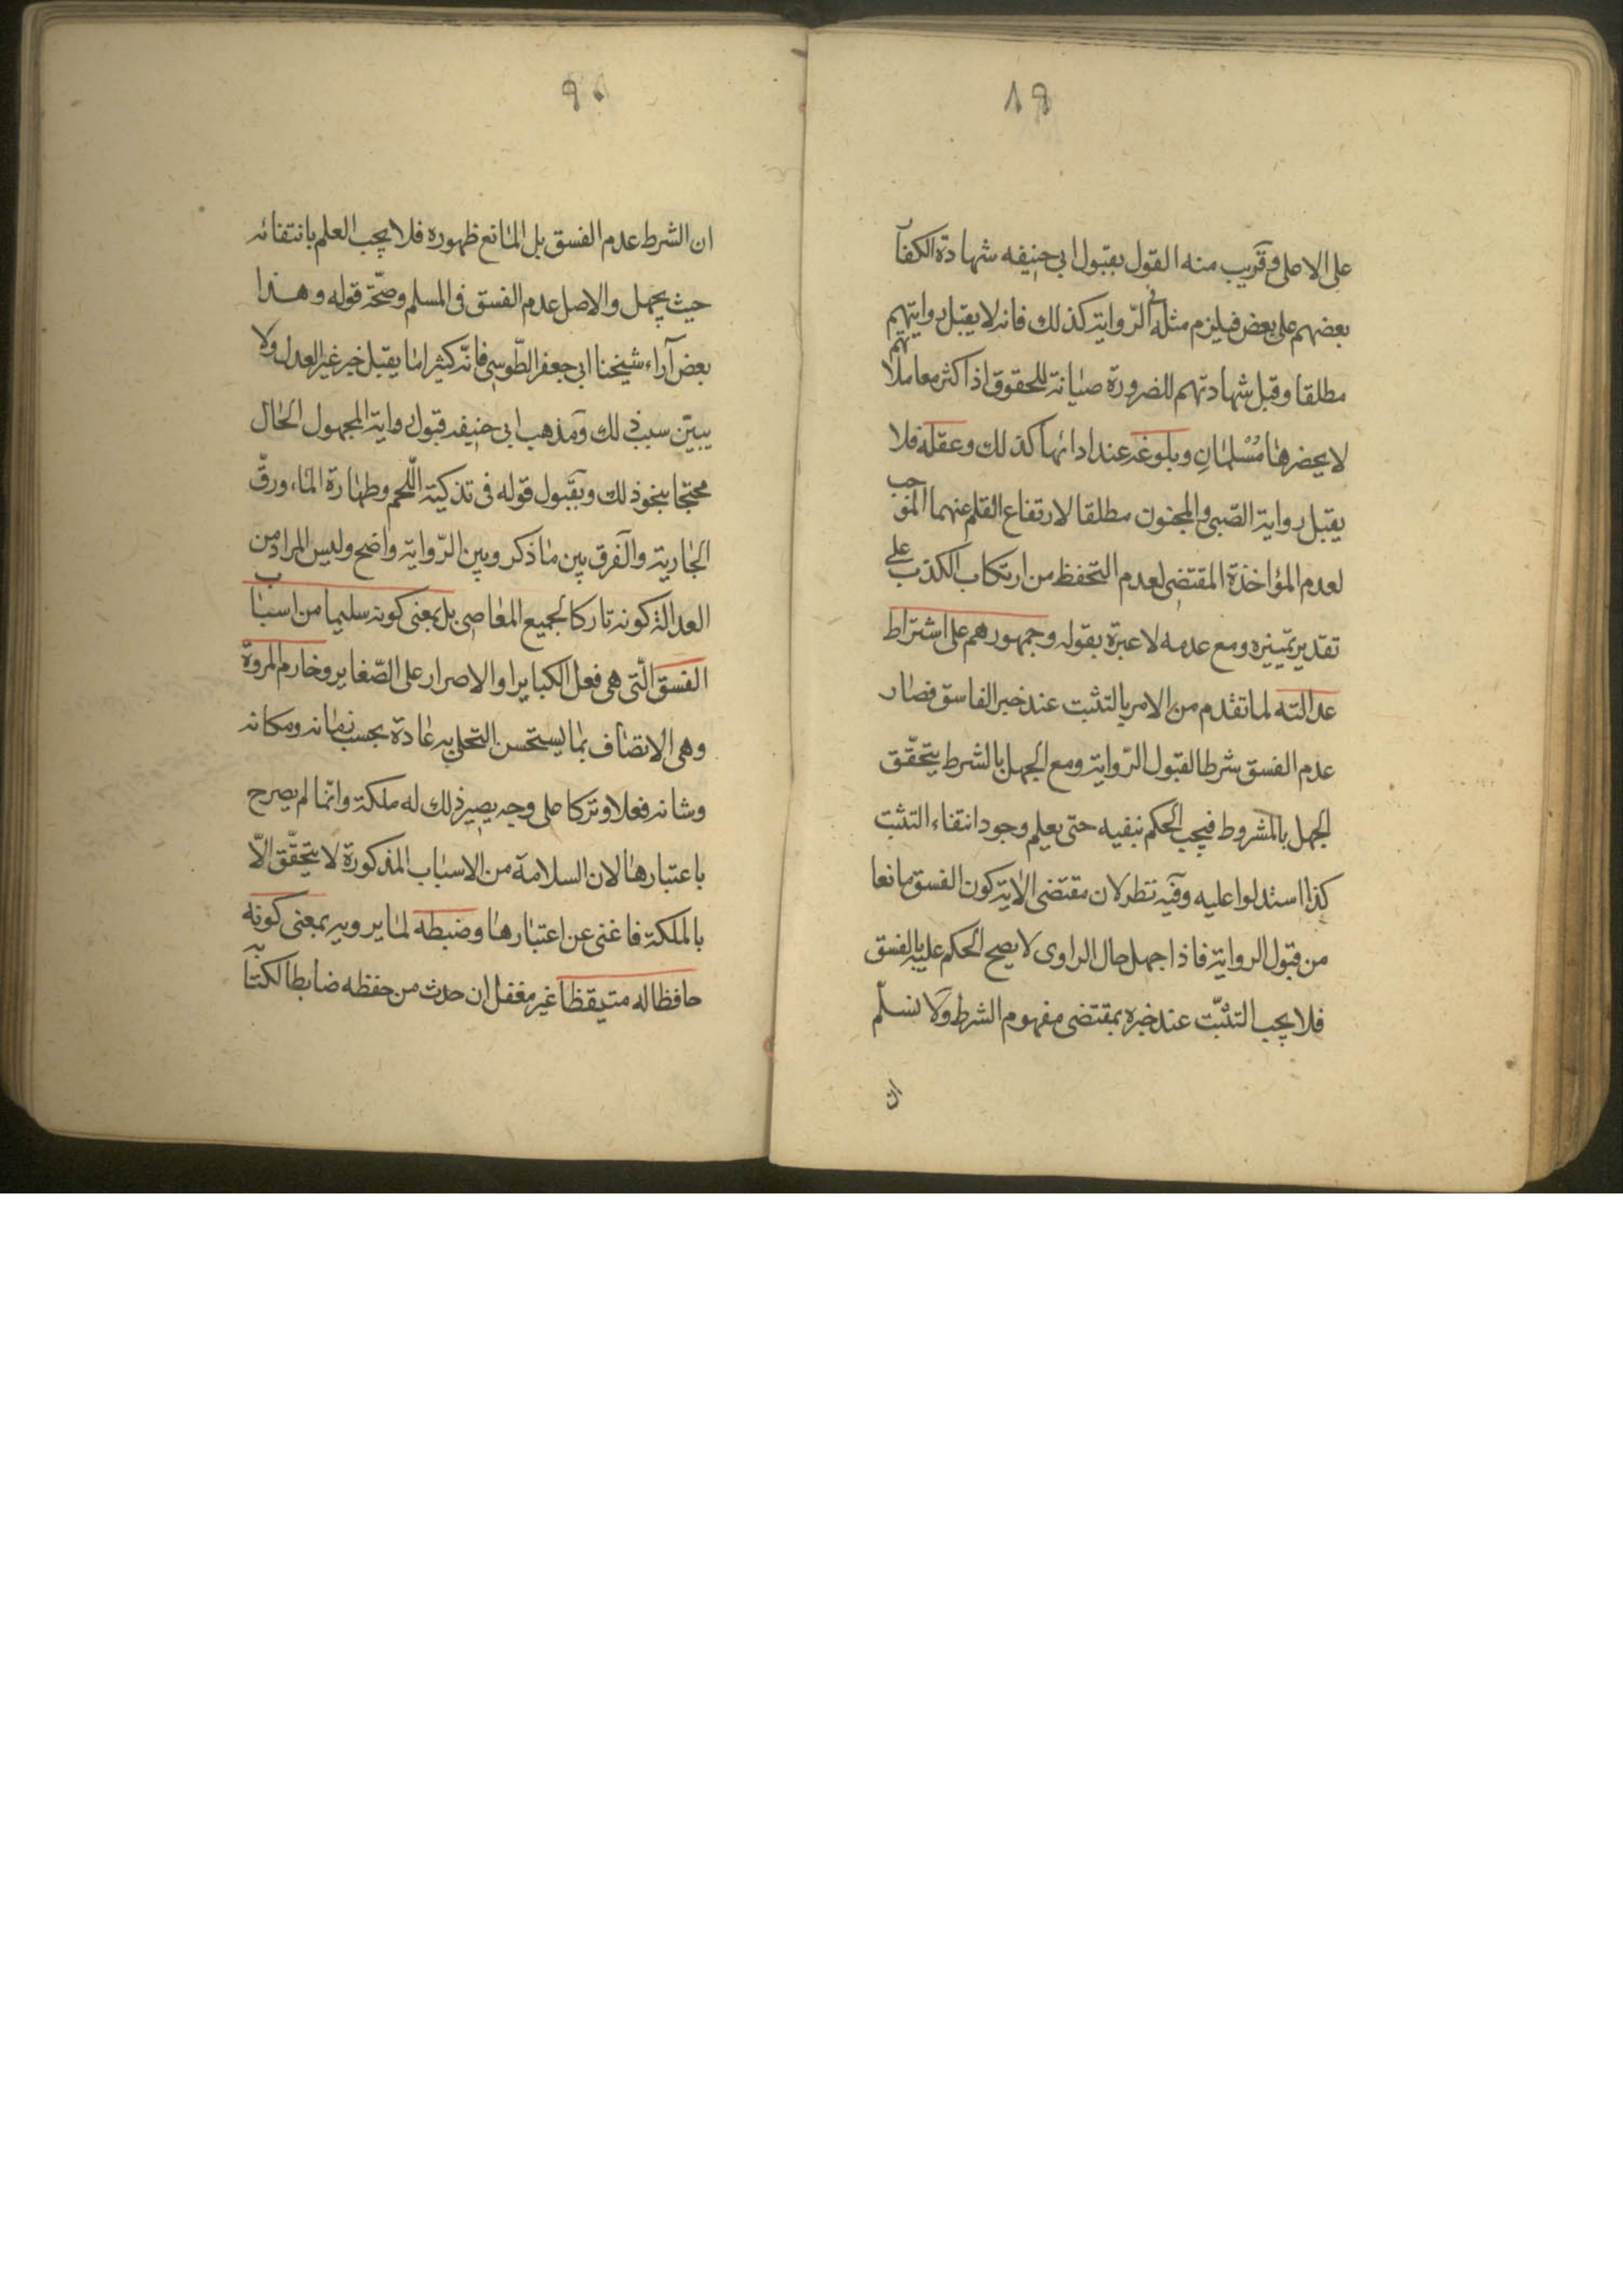 ٨٩
على الاعلى وقريب منه القول بقبول ابي حنيفه شهادة الكفار
بعضهم على بعض فيلزم مثله في الرّواية كذلك فانه لا يقبل روايتهم
مطلقا وقبل شهادتهم للضرورة صيانة للحقوق اذ اكثر معاملاتهم
لا يحضرها مُسْلمانِ وبلوغه عند ادائها كذلك وعقله فلا
يقبل رواية الصّبي والمجنون مطلقا لارتفاع القلم عنهما الموجب
لعدم المؤاخذة المقتضى لعدم التحفظ من ارتكاب الكذب على
تقدير تمييزه ومع عدمه لا عبرة بقوله وجمهورهم على اشتراط
عدالته لما تقدم من الامر بالتثبت عند خبر الفاسق فصار
عدم الفسق شرطا لقبول الرّواية ومع الجهل بالشرط يتحقّق
الجهل بالمشروط فيجب الحكم بنفيه حتى يعلم وجود انتفاء التثبت
كذا استدلوا عليه وفيه نظر لان مقتضى الاية كون الفسق مانعا
من قبول الرواية فاذا جهل حال الراوى لا يصح الحكم عليه بالفسق
فلا يجب التثبّت عند خبره بمقتضى مفهوم الشرط ولا نسلّم
ان
٩٠
ان الشرط عدم الفسق بل المانع ظهوره فلا يجب العلم بانتفائه
حيث يجهل والاصل عدم الفسق في المسلم وصحّة قوله وهذا
بعض آراء شيخنا ابي جعفر الطّوسي فانّه كثيرا ما يقبل خبر غير العدل ولا
يبيّن سبب ذلك ومذهب ابي حنيفه قبول رواية المجهول الحال
محتجا بنحو ذلك وبقبول قوله في تذكية اللّحم وطهارة الماء ورقّ
الجارية والفرق بين ما ذكر وبين الرّواية واضح وليس المراد من
العدالة كونه تاركا لجميع المعاصى بل بمعنى كونه سليما من اسباب
الفسق الّتى هى فعل الكباير او الاصرار على الصّغاير وخارم المروة
وهى الاتصاف بما يستحسن التحلى به عادة بحسب زمانه ومكانه
وشانه فعلا وتركا على وجه يصير ذلك له ملكة وانّما لم يصرح
باعتبارها لان السلامة من الاسباب المذكورة لا يتحقّق الّا
بالملكة فاغنى عن اعتبارها وضبطه لما يرويه بمعنى كونه
حافظا له متيقظا غير مغفل ان حدث من حفظه ضابطا لكتابه